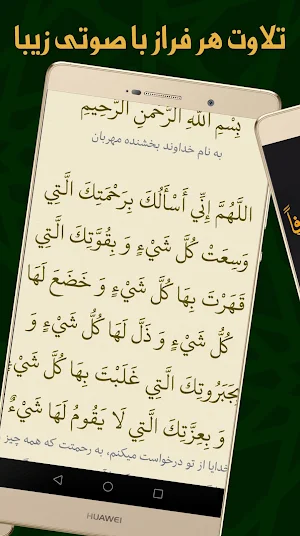 تلاوت هر فراز با صوتی زیبا
بِسْمِ اللَّهِ الرَّحْمَنِ الرَّحِيمِ
به نام خداوند بخشنده مهربان
اللَّهُمَّ إِنِّي أَسْأَلُكَ بِرَحْمَتِكَ الَّتِي
وَسِعَتْ كُلَّ شَيْءٍ وَ بِقُوَّتِكَ الَّتِي
قَهَرْتَ بِهَا كُلَّ شَيْءٍ وَ خَضَعَ لَهَا
كُلُّ شَيْءٍ وَ ذَلَّ لَهَا كُلُّ شَيْءٍ وَ
بِجَبَرُوتِكَ الَّتِي غَلَبْتَ بِهَا كُلَّ شَيْءٍ
وَ بِعِزَّتِكَ الَّتِي لَا يَقُومُ لَهَا شَيْءٌ
خدایا از تو درخواست میکنم، به رحمتت که همه چیز
HUAWEI